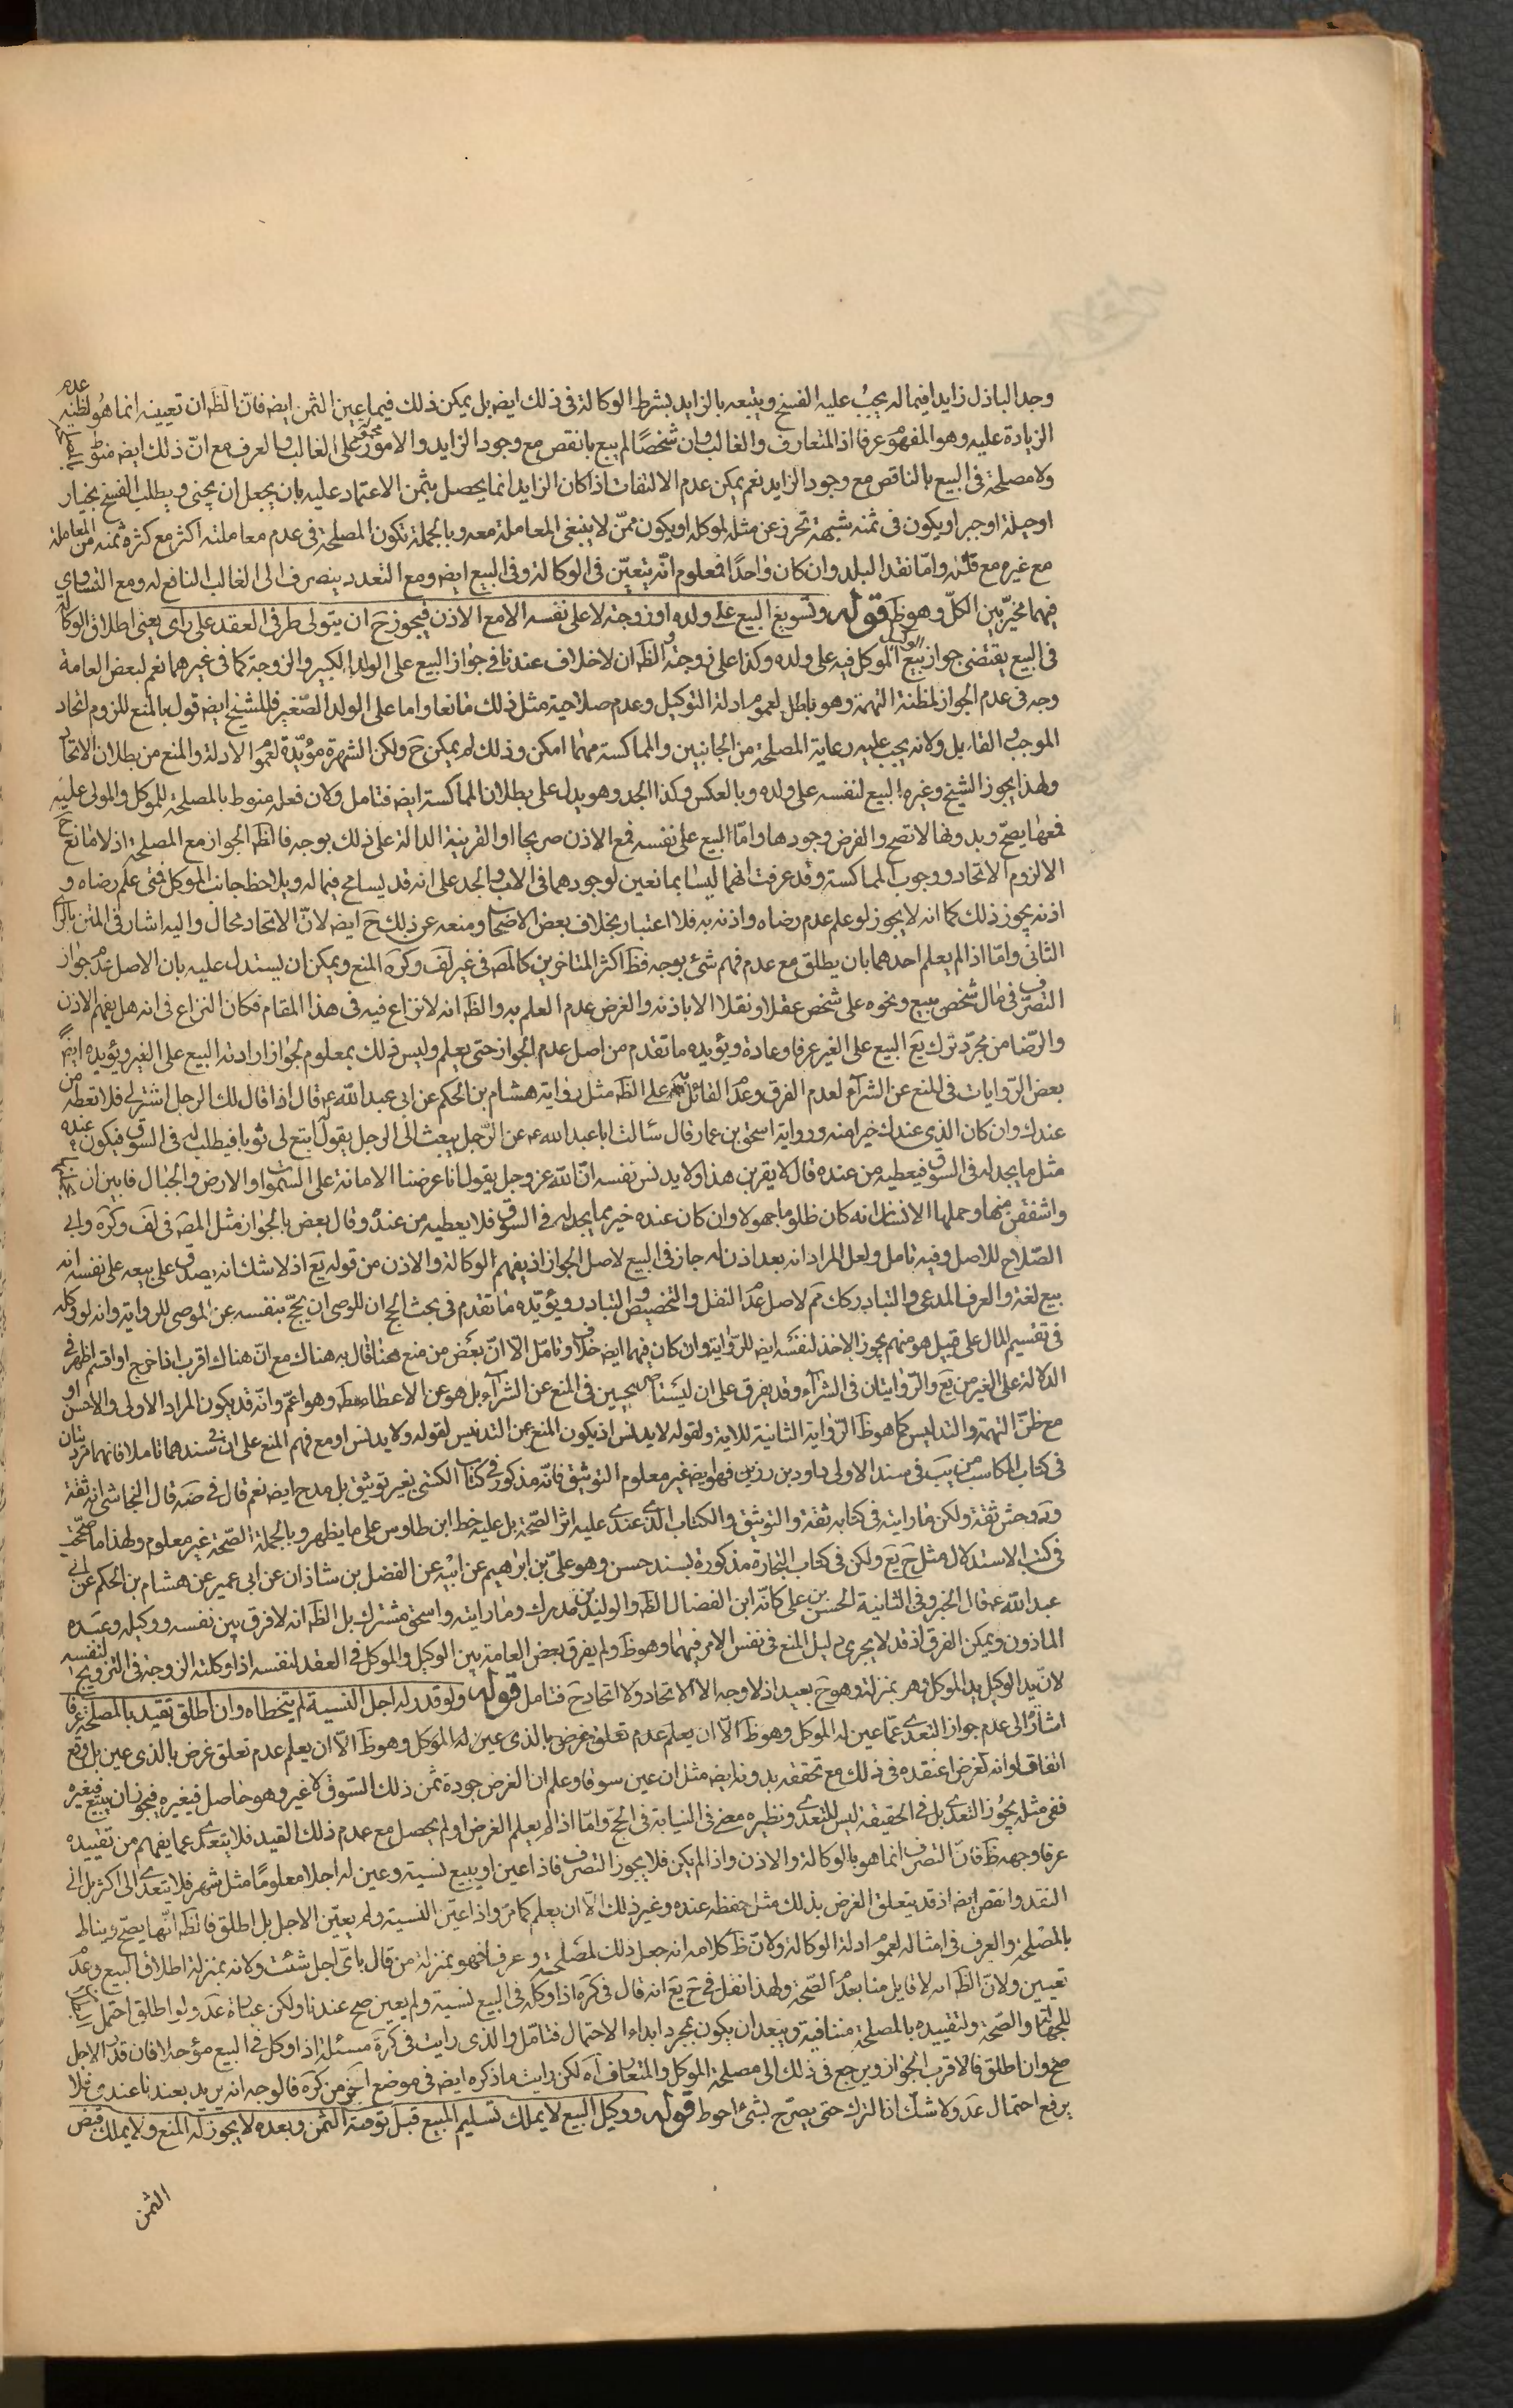 وجد الباذل زايدا فيما له يجب عليه الفسخ ويتبعه بالزايد بشرط الوكالة فى ذلك ايضه بل يمكن ذلك فيما عين الثمن ايضه فان الظه ان تعيينه انما هو لظنه عدم
الزيادة عليه وهو المفهوم عرفا اذ المتعارف والغالب ان شخصًا لم يبع بانقص مع وجود الزايد والامور محمولة على الغالب والعرف مع انّ ذلك ايضه منوط بالمصلحة
ولا مصلحة فى البيع بالناقص مع وجود الزايد نعم يمكن عدم الالتفات اذا كان الزايد انما يحصل بثمن الاعتماد عليه بان يجعل ان يجئ ويطلب الفسخ بخيار
او حيلة او جبر او يكون فى ثمنه شبهة تحرز عن مثله لموكله او يكون ممّن لا ينبغى المعاملة معه وبالجملة تكون المصلحة فى عدم معاملته اكثر مع كثرة ثمنه من المعاملة
مع غيره مع قلته وامّا نقد البلد وان كان واحدًا فمعلوم انّه يتعيّن فى الوكالة وفى البيع ايضه ومع التعدد ينصرف الى الغالب النافع له ومع التساوى
فيهما مخيّر بين الكلّ وهو ظَ قوله وتسويغ البيع على ولده او زوجته لا على نفسه الا مع الاذن فيجوز حَ ان يتولى طرفى العقد على راى يعنى اطلاق الوكالة
فى البيع يقتضى جواز بيع الوكيل الموكل فيه على ولده وكذا على زوجته والظه ان لا خلاف عندنا فى جواز البيع على الولد الكبير والزوجة كما فى غيرهما نعم لبعض العامة
وجه فى عدم الجواز لمظنة التهمة وهو باطل لعموم ادلة التوكيل وعدم صلاحية مثل ذلك مانعا واما على الولد الصّغير فللشيخ ايضه قول بالمنع للزوم اتحاد
الموجب والقابل ولانه يجب عليه رعاية المصلحة من الجانبين والمماكسة مهما امكن وذلك لم يمكن حَ ولكن الشهرة مؤيّدة لعموم الادلة والمنع من بطلان الاتحاد
ولهذا يجوز الشيخ وغيره البيع لنفسه على ولده وبالعكس وكذا الجد وهو يدل على بطلان المماكسة ايضه فتامل ولان فعله منوط بالمصلحة للموكل والمولى عليه
فمعها يصحّ وبدونها لا تصح والفرض وجودها وامّا البيع على نفسه فمع الاذن صريحا او القرينة الدالة على ذلك بوجه فالظه الجواز مع المصلحة اذ لا مانع حَ
الا لزوم الاتحاد ووجوب المماكسة وقد عرفت انهما ليسا بمانعين لوجودهما فى الاب والجد على انه قد يسامح فيما له ويلاحظ جانب الموكل فمتى علم رضاه و
اذنه يجوز ذلك كما انه لا يجوز لو علم عدم رضاه واذنه به فلا اعتبار بخلاف بعض الاصحاب ومنعه عن ذلك حَ ايضه لانّ الاتحاد محال واليه اشار فى المتن بالراى
الثانى وامّا اذا لم يعلم احدهما بان يطلق مع عدم فهم شئ بوجه فظَ اكثر المتاخرين كالمصَ فى غير لَفَ وكَرَه المنع ويمكن ان يستدل عليه بان الاصل عدم جواز
التصرّف فى مال شخص ببيع ونحوه على شخص عقلا ونقلا الا باذنه والفرض عدم العلم به والظه انه لا نزاع فيه فى هذا المقام فكان النزاع فى انه هل يفهم الاذن
والرّضا من مجرّد ترك بَع البيع على الغير عرفا وعادة ويؤيده ما تقدم من اصل عدم الجواز حتى يعلم وليس ذلك بمعلوم لجواز ارادته البيع على الغير ويؤيده ايضًا
بعض الرّوايات فى المنع عن الشرآء لعدم الفرق وعدم القائل به على الظه مثل رواية هشام بن الحكم عن ابى عبد الله عه قال اذا قال لك الرجل اشتر لى فلا تعطه من
عندك وان كان الذي عندك خيرا منه ورواية اسحق بن عمار قال سالت ابا عبد الله عه عن الرّجل يبعث الى الرجل يقول ابتع لى ثوبا فيطلب له فى السوق فيكون عنده
مثل ما يجد له فى السوق فيعطيه من عنده قال لا يقربن هذا ولا يدنس نفسه انّ الله عز وجل يقول انا عرضنا الامانة على السموات والارض والجبال فابين ان يحملنها
واشفقن منها وحملها الانسان انه كان ظلوما جهولا وان كان عنده خير مما يجد له فى السوق فلا يعطيه من عنده وقال بعض بالجواز مثل المصَ فى لَف وكَرَه وابى
الصّلاح للاصل وفيه تامل ولعل المراد انه بعد اذن له جاز فى البيع لاصل الجواز اذ يفهم الوكالة والاذن من قوله بَع اذ لا شك انه يصدق على بيعه على نفسه انه
بيع لغة والعرف المدعى والتبادر كك تَم لاصل عدم النقل والتخصيص والتبادر ويؤيّده ما تقدم فى بحث الحج ان للوصى ان يحجّ بنفسه عن الموصى للرواية وانه لو وكله
فى تقسيم المال على قبيل هو منهم يجوز الاخذ لنفسه ايضه للرّواية وان كان فيهما ايضه خلاف وتامّل الّا انّ بعض من منع هنا قال به هناك مع انّ هناك اقرب اذ اخرج او اقسم اظهر فى
الدلالة على الغير من بَع والرّوايتان فى الشرآء وقد يفرق على ان ليستا صحيحتين فى المنع عن الشرآء بل هو عن الاعطاء مطه وهو اعمّ وانّه قد يكون المراد الاولى والاحسن او
مع ظنّ التهمة والتدليس كما هو ظَ الرّواية الثانية للاية ولقوله لا يدنس اذ يكون المنع عن التدنيس لقوله ولا يدنس او مع فهم المنع على ان فى سندهما تاملا فانهما مرويتان
فى كتاب المكاسب من يَب فى سند الاولى داود بن رزين فهو ايضه غير معلوم التوثيق فانّه مذكور فى كتاب الكشى بغير توثيق بل مدح ايضه نعم قال فى صَه قال النجاشى انه ثقة
وَدَ وجش ثقة ولكن ما رايته فى كتابه ثقة والتوثيق والكتاب الذى عندى عليه اثر الصّحة بل عليه خط ابن طاوس على ما يظهر وبالجملة الصّحة غير معلوم ولهذا ما صحّحت
فى كتب الاستدلال مثل حَ يَع ولكن فى كتاب التجارة مذكورة بسند حسن وهو علىّ بن ابراهيم عن ابيه عن الفضل بن شاذان عن ابى عمير عن هشام بن الحكم عن ابى
عبد الله عه قال الخبر وفى الثانية الحسن بن على كانّه ابن الفضال الظه والوليد بن مدرك وما رايته واسحق مشترك بل الظه انه لا فرق بين نفسه ووكيله وعبده
الماذون ويمكن الفرق اذ قد لا يجرى دليل المنع فى نفس الامر فيهما وهو ظَ ولم يفرق بعض العامة بين الوكيل والموكل فى العقد لنفسه اذا وكلته الزوجة فى التزويج لنفسه
لانّ يد الوكيل يد الموكل فهو بمنزلته وهو حَ بعيد اذ لا وجه الا الاتحاد ولا اتحاد حَ فتامل قوله ولو قدر له اجل النسية لم يتخطاه وان اطلق تقيد بالمصلحة عرفا
اشارة الى عدم جواز التعدى عمّا عين له الموكل وهو ظَ الّا ان يعلم عدم تعلق غرض بالذى عين له الموكل وهو ظَ الّا ان يعلم عدم تعلق غرض بالذى عين بل وقع
اتفاقا وانه لغرض اعتقده فى ذلك مع تحققه بدونه ايضه مثل ان عين سوقا وعلم ان الغرض جودة ثمن ذلك السّوق لا غير وهو حاصل فى غيره فيجوز ان يبيع فى غيره
ففى مثله يجوز التعدى بل فى الحقيقة ليس للتعدى ونظيره مضى فى النيابة فى الحجّ وامّا اذا لم يعلم الغرض او لم يحصل مع عدم ذلك القيد فلا يتعدى عما يفهم من تقييده
عرفا وجهه ظَ فانّ التصرف انما هو بالوكالة والاذن واذا لم يكن فلا يجوز التصرف فاذا عين او يبيع نسية وعين له اجلا معلومًا مثل شهر فلا يتعدى الى اكثر بل الى
النقد وانقص ايضه اذ قد يتعلق الغرض بذلك مثل حفظه عنده وغير ذلك الّا ان يعلم كما مرّ واذا عيّن النسية ولم يعيّن الاجل بل اطلق فالظه انّها يصحّ ويناط
بالمصلحة والعرف فى امثاله لعموم ادلة الوكالة ولانّ ظَ كلامه انه جعل ذلك لمصلحة وعرف فهو بمنزلة من قال باىّ اجل شئت ولانه بمنزلة اطلاق البيع وعدم
تعيين ولانّ الظه انه لا قايل منا بعدم الصّحة ولهذا نقل فى حَ يَع انه قال فى كَرَه اذا وكله فى البيع نسية ولم يعين صح عندنا ولكن عبارة عَدَ ولو اطلق احتمل البطلان
للجهالة والصّحة ولتقييده بالمصلحة متنافية ويبعد ان يكون بمجرد ابداء الاحتمال فتامّل والذى رايت فى كَرَه مسئلة اذا وكل فى البيع مؤجلا فان قدر الاجل
صح وان اطلق فالاقرب الجواز ويرجع فى ذلك الى مصلحة الموكل والمتعارف آه لكن رايت ما ذكره ايضه فى موضع آخر من كَرَه فالوجه انه يريد بعندنا عندى فلا
يرفع احتمال عَدَ ولا شك ان الترك حتى يصرّح بشئ احوط قوله ووكيل البيع لا يملك تسليم المبيع قبل توفية الثمن وبعده لا يجوز له المنع ولا يملك قبض
الثمن